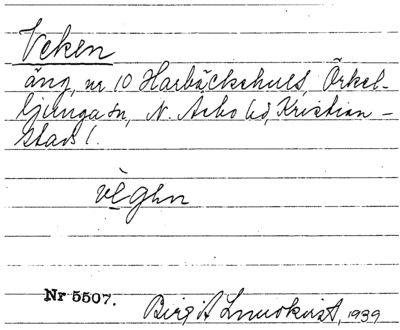 Veken
äng, nr 10 Harbäckshult, Örkel-
ljunga sn, N. Åsbo hd, Kristian-
stads l.
vèghn
Nr 5507.
Birgit Lundkvist, 1939